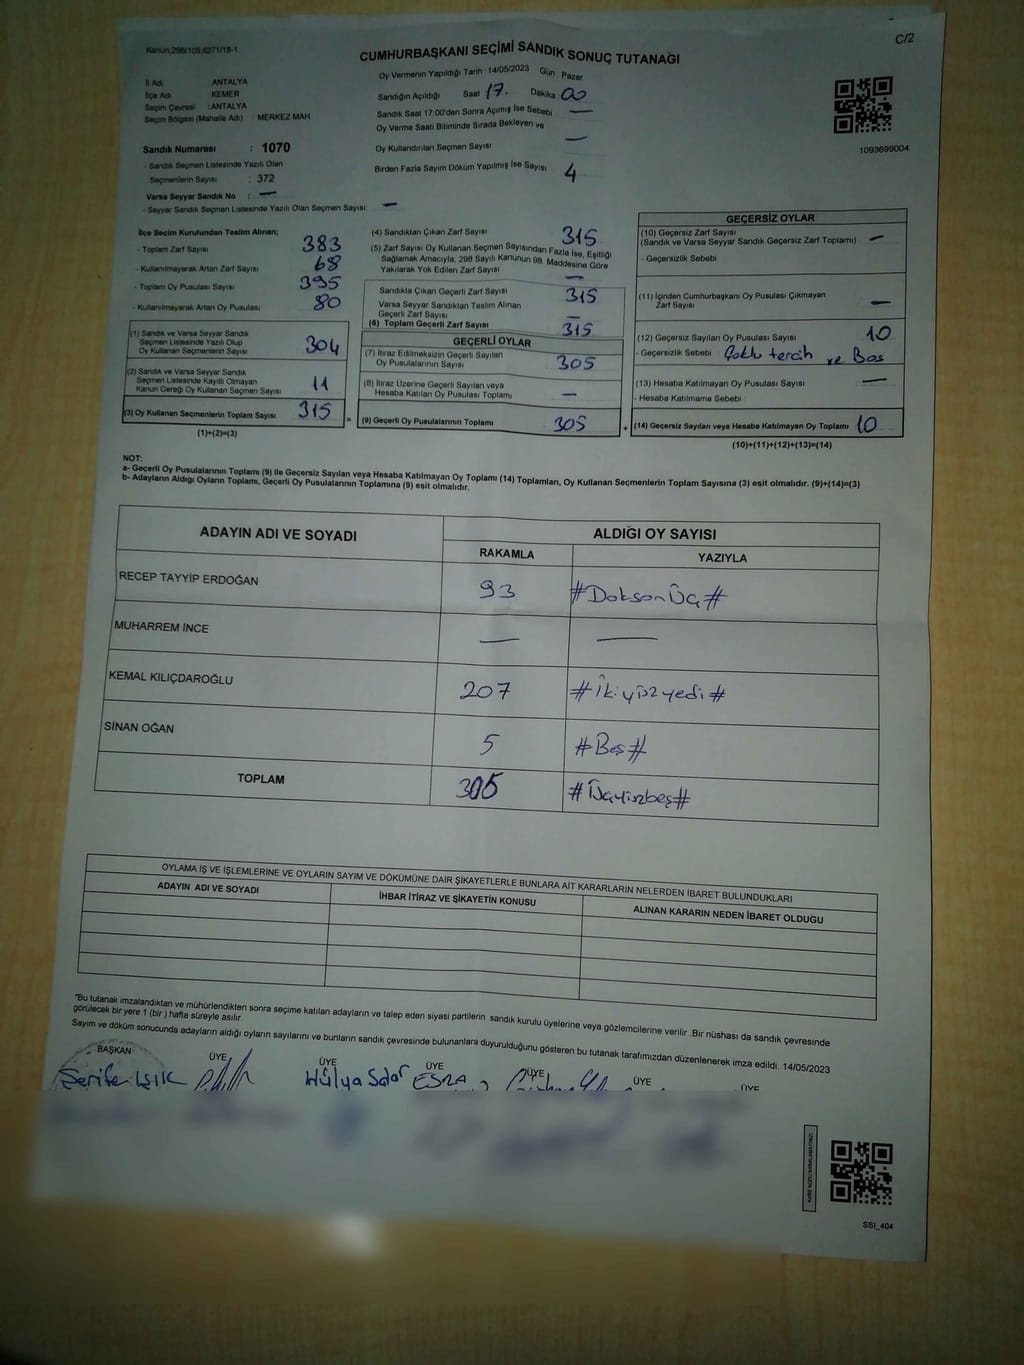 Kanun:298/105,6271/18-1
C/2
CUMHURBAŞKANI SEÇİMİ SANDIK SONUÇ TUTANAĞI
İl Adı ANTALYA
İlçe Adı KEMER
Seçim Çevresi :ANTALYA
Seçim Bölgesi (Mahalle Adı) MERKEZ MAH
Sandık Numarası : 1070
- Sandık Seçmen Listesinde Yazılı Olan
Seçmenlerin Sayısı : 372
Varsa Seyyar Sandık No : —
- Seyyar Sandık Seçmen Listesinde Yazılı Olan Seçmen Sayısı —
Oy Vermenin Yapıldığı Tarih 14/05/2023 Gün Pazar
Sandığın Açıldığı Saat 17. Dakika 00
Sandık Saat 17:00'den Sonra Açımış İse Sebebi —
Oy Verme Saati Bitiminde Sırada Bekleyen ve
Oy Kullandırılan Seçmen Sayısı —
Birden Fazla Sayım Döküm Yapılmış İse Sayısı 4
1093699004
İlçe Seçim Kurulundan Teslim Alınan;
- Toplam Zarf Sayısı 383
- Kullanılmayarak Artan Zarf Sayısı 68
- Toplam Oy Pusulası Sayısı 395
- Kullanılmayarak Artan Oy Pusulası 80
(1) Sandık ve Varsa Seyyar Sandık
Seçmen Listesinde Yazılı Olup
Oy Kullanan Seçmenlerin Sayısı 304
(2) Sandık ve Varsa Seyyar Sandık
Seçmen Listesinde Kayıtlı Olmayan
Kanun Gereği Oy Kullanan Seçmen Sayısı 11
(3) Oy Kullanan Seçmenlerin Toplam Sayısı 315 =
(1)+(2)=(3)
(4) Sandıktan Çıkan Zarf Sayısı 315
(5) Zarf Sayısı Oy Kullanan Seçmen Sayısından Fazla İse, Eşitliği
Sağlamak Amacıyla, 298 Sayılı Kanunun 98. Maddesine Göre
Yakılarak Yok Edilen Zarf Sayısı —
Sandıkta Çıkan Geçerli Zarf Sayısı 315
Varsa Seyyar Sandıktan Teslim Alınan
Geçerli Zarf Sayısı —
(6) Toplam Geçerli Zarf Sayısı 315
GEÇERLİ OYLAR
(7) İtiraz Edilmeksizin Geçerli Sayılan
Oy Pusulalarının Sayısı 305
(8) İtiraz Üzerine Geçerli Sayılan veya
Hesaba Katılan Oy Pusulası Toplamı —
(9) Geçerli Oy Pusulalarının Toplamı 305 +
GEÇERSİZ OYLAR
(10) Geçersiz Zarf Sayısı
(Sandık ve Varsa Seyyar Sandık Geçersiz Zarf Toplamı) —
- Geçersizlik Sebebi
(11) İçinden Cumhurbaşkanı Oy Pusulası Çıkmayan
Zarf Sayısı —
(12) Geçersiz Sayılan Oy Pusulası Sayısı 10
- Geçersizlik Sebebi Çoklu tercih ve Boş
(13) Hesaba Katılmayan Oy Pusulası Sayısı —
- Hesaba Katılmama Sebebi
(14) Geçersiz Sayılan veya Hesaba Katılmayan Oy Toplamı 10
(10)+(11)+(12)+(13)=(14)
NOT:
a- Geçerli Oy Pusulalarının Toplamı (9) ile Geçersiz Sayılan veya Hesaba Katılmayan Oy Toplamı (14) Toplamları, Oy Kullanan Seçmenlerin Toplam Sayısına (3) eşit olmalıdır. (9)+(14)=(3)
b- Adayların Aldığı Oyların Toplamı, Geçerli Oy Pusulalarının Toplamına (9) eşit olmalıdır.
ADAYIN ADI VE SOYADI ALDIĞI OY SAYISI
RAKAMLA YAZIYLA
RECEP TAYYİP ERDOĞAN 93 #Doksan Üç#
MUHARREM İNCE — —
KEMAL KILIÇDAROĞLU 207 #İkiyüzyedi#
SİNAN OĞAN 5 #Beş#
TOPLAM 305 #Üçyüzbeş#
OYLAMA İŞ VE İŞLEMLERİNE VE OYLARIN SAYIM VE DÖKÜMÜNE DAİR ŞİKAYETLERLE BUNLARA AİT KARARLARIN NELERDEN İBARET BULUNDUKLARI
ADAYIN ADI VE SOYADI İHBAR İTİRAZ VE ŞİKAYETİN KONUSU ALINAN KARARIN NEDEN İBARET OLDUĞU
"Bu tutanak imzalandıktan ve mühürlendikten sonra seçime katılan adayların ve talep eden siyasi partilerin sandık kurulu üyelerine veya gözlemcilerine verilir .Bir nüshası da sandık çevresinde
görülecek bir yere 1 (bir ) hafta süreyle asılır.
Sayım ve döküm sonucunda adayların aldığı oyların sayılarını ve bunların sandık çevresinde bulunanlara duyurulduğunu gösteren bu tutanak tarafımızdan düzenlenerek imza edildi. 14/05/2023
BAŞKAN ÜYE ÜYE ÜYE ÜYE ÜYE ÜYE
Şerife Işık Hülya ESRA
SSI_404